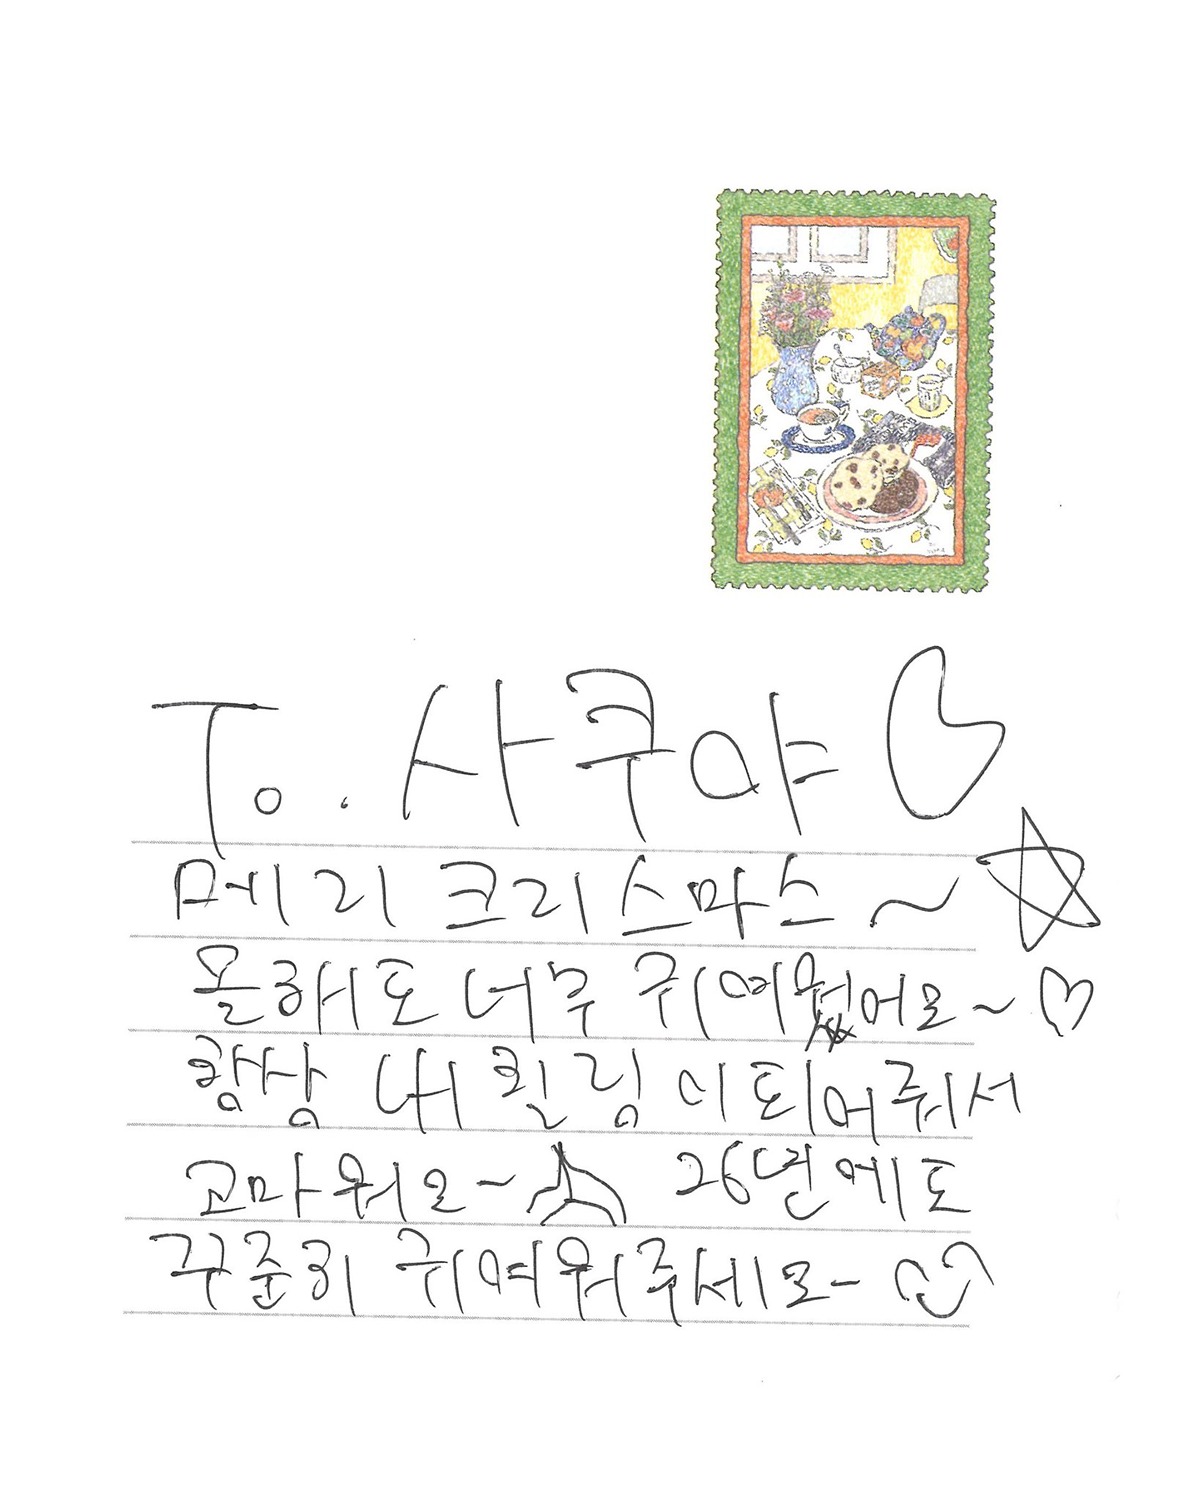 To. 사쿠야
메리 크리스마스~
올해도 너무 귀여웠어요~♡
항상 내 힐링이 되어줘서
고마워요~ 26년에도
꾸준히 귀여워주세요~